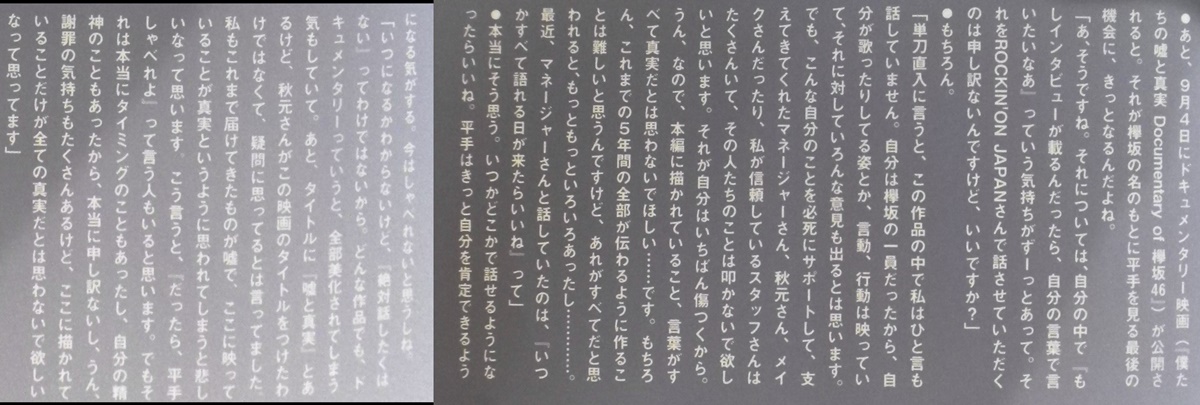 ●あと、9月4日にドキュメンタリー映画（『僕た
ちの嘘と真実 Documentary of 欅坂46』）が公開さ
れると。それが欅坂の名のもとに平手を見る最後の
機会に、きっとなるんだよね。
「あ、そうですね。それについては、自分の中で『も
しインタビューが載るんだったら、自分の言葉で言
いたいなあ』っていう気持ちがずーっとあって。そ
れをROCKIN'ON JAPANさんで話させていただく
のは申し訳ないんですけど、いいですか？」
●もちろん。
「単刀直入に言うと、この作品の中で私はひと言も
話していません。自分は欅坂の一員だったから、自
分が歌ったりしてる姿とか、言動、行動は映ってい
て、それに対していろんな意見も出るとは思います。
でも、こんな自分のことを必死にサポートして、支
えてきてくれたマネージャーさん、秋元さん、メイ
クさんだったり、私が信頼しているスタッフさんは
たくさんいて、その人たちのことは叩かないで欲し
いと思います。それが自分はいちばん傷つくから。
うん、なので、本編に描かれていること、言葉がす
べて真実だとは思わないでほしい……です。もちろ
ん、これまでの5年間の全部が伝わるように作るこ
とは難しいと思うんですけど、あれがすべてだと思
われると、もっともっといろいろあったし…………。
最近、マネージャーさんと話していたのは、『いつ
かすべて語れる日が来たらいいね』って」
●本当にそう思う。いつかどこかで話せるようにな
ったらいいね。平手はきっと自分を肯定できるよう
になる気がする。今はしゃべれないと思うしね。
「いつになるかわからないけど、『絶対話したくは
ない』ってわけではないから。どんな作品でも、ド
キュメンタリーっていうと、全部美化されてしまう
気もしていて。あと、タイトルに『嘘と真実』とあ
るけど、秋元さんがこの映画のタイトルをつけたわ
けではなくて、疑問に思ってるとは言ってました。
私もこれまで届けてきたものが嘘で、ここに映って
いることが真実というように思われてしまうと悲し
いなって思います。こう言うと、『だったら、平手
しゃべれよ』って言う人もいると思います。でもそ
れは本当にタイミングのこともあったし、自分の精
神のこともあったから、本当に申し訳ないし、うん、
謝罪の気持ちもたくさんあるけど、ここに描かれて
いることだけが全ての真実だとは思わないで欲しい
なって思ってます」